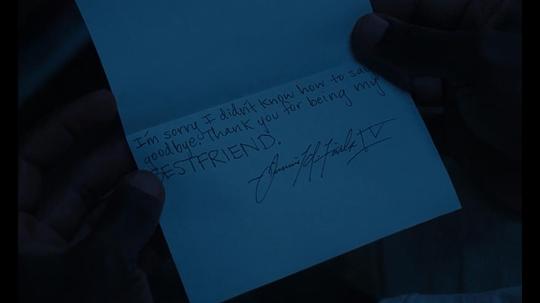 I'm sorry I didn't know how to sa
goodbye. Thank you for being my
BESTFRIEND.
IV